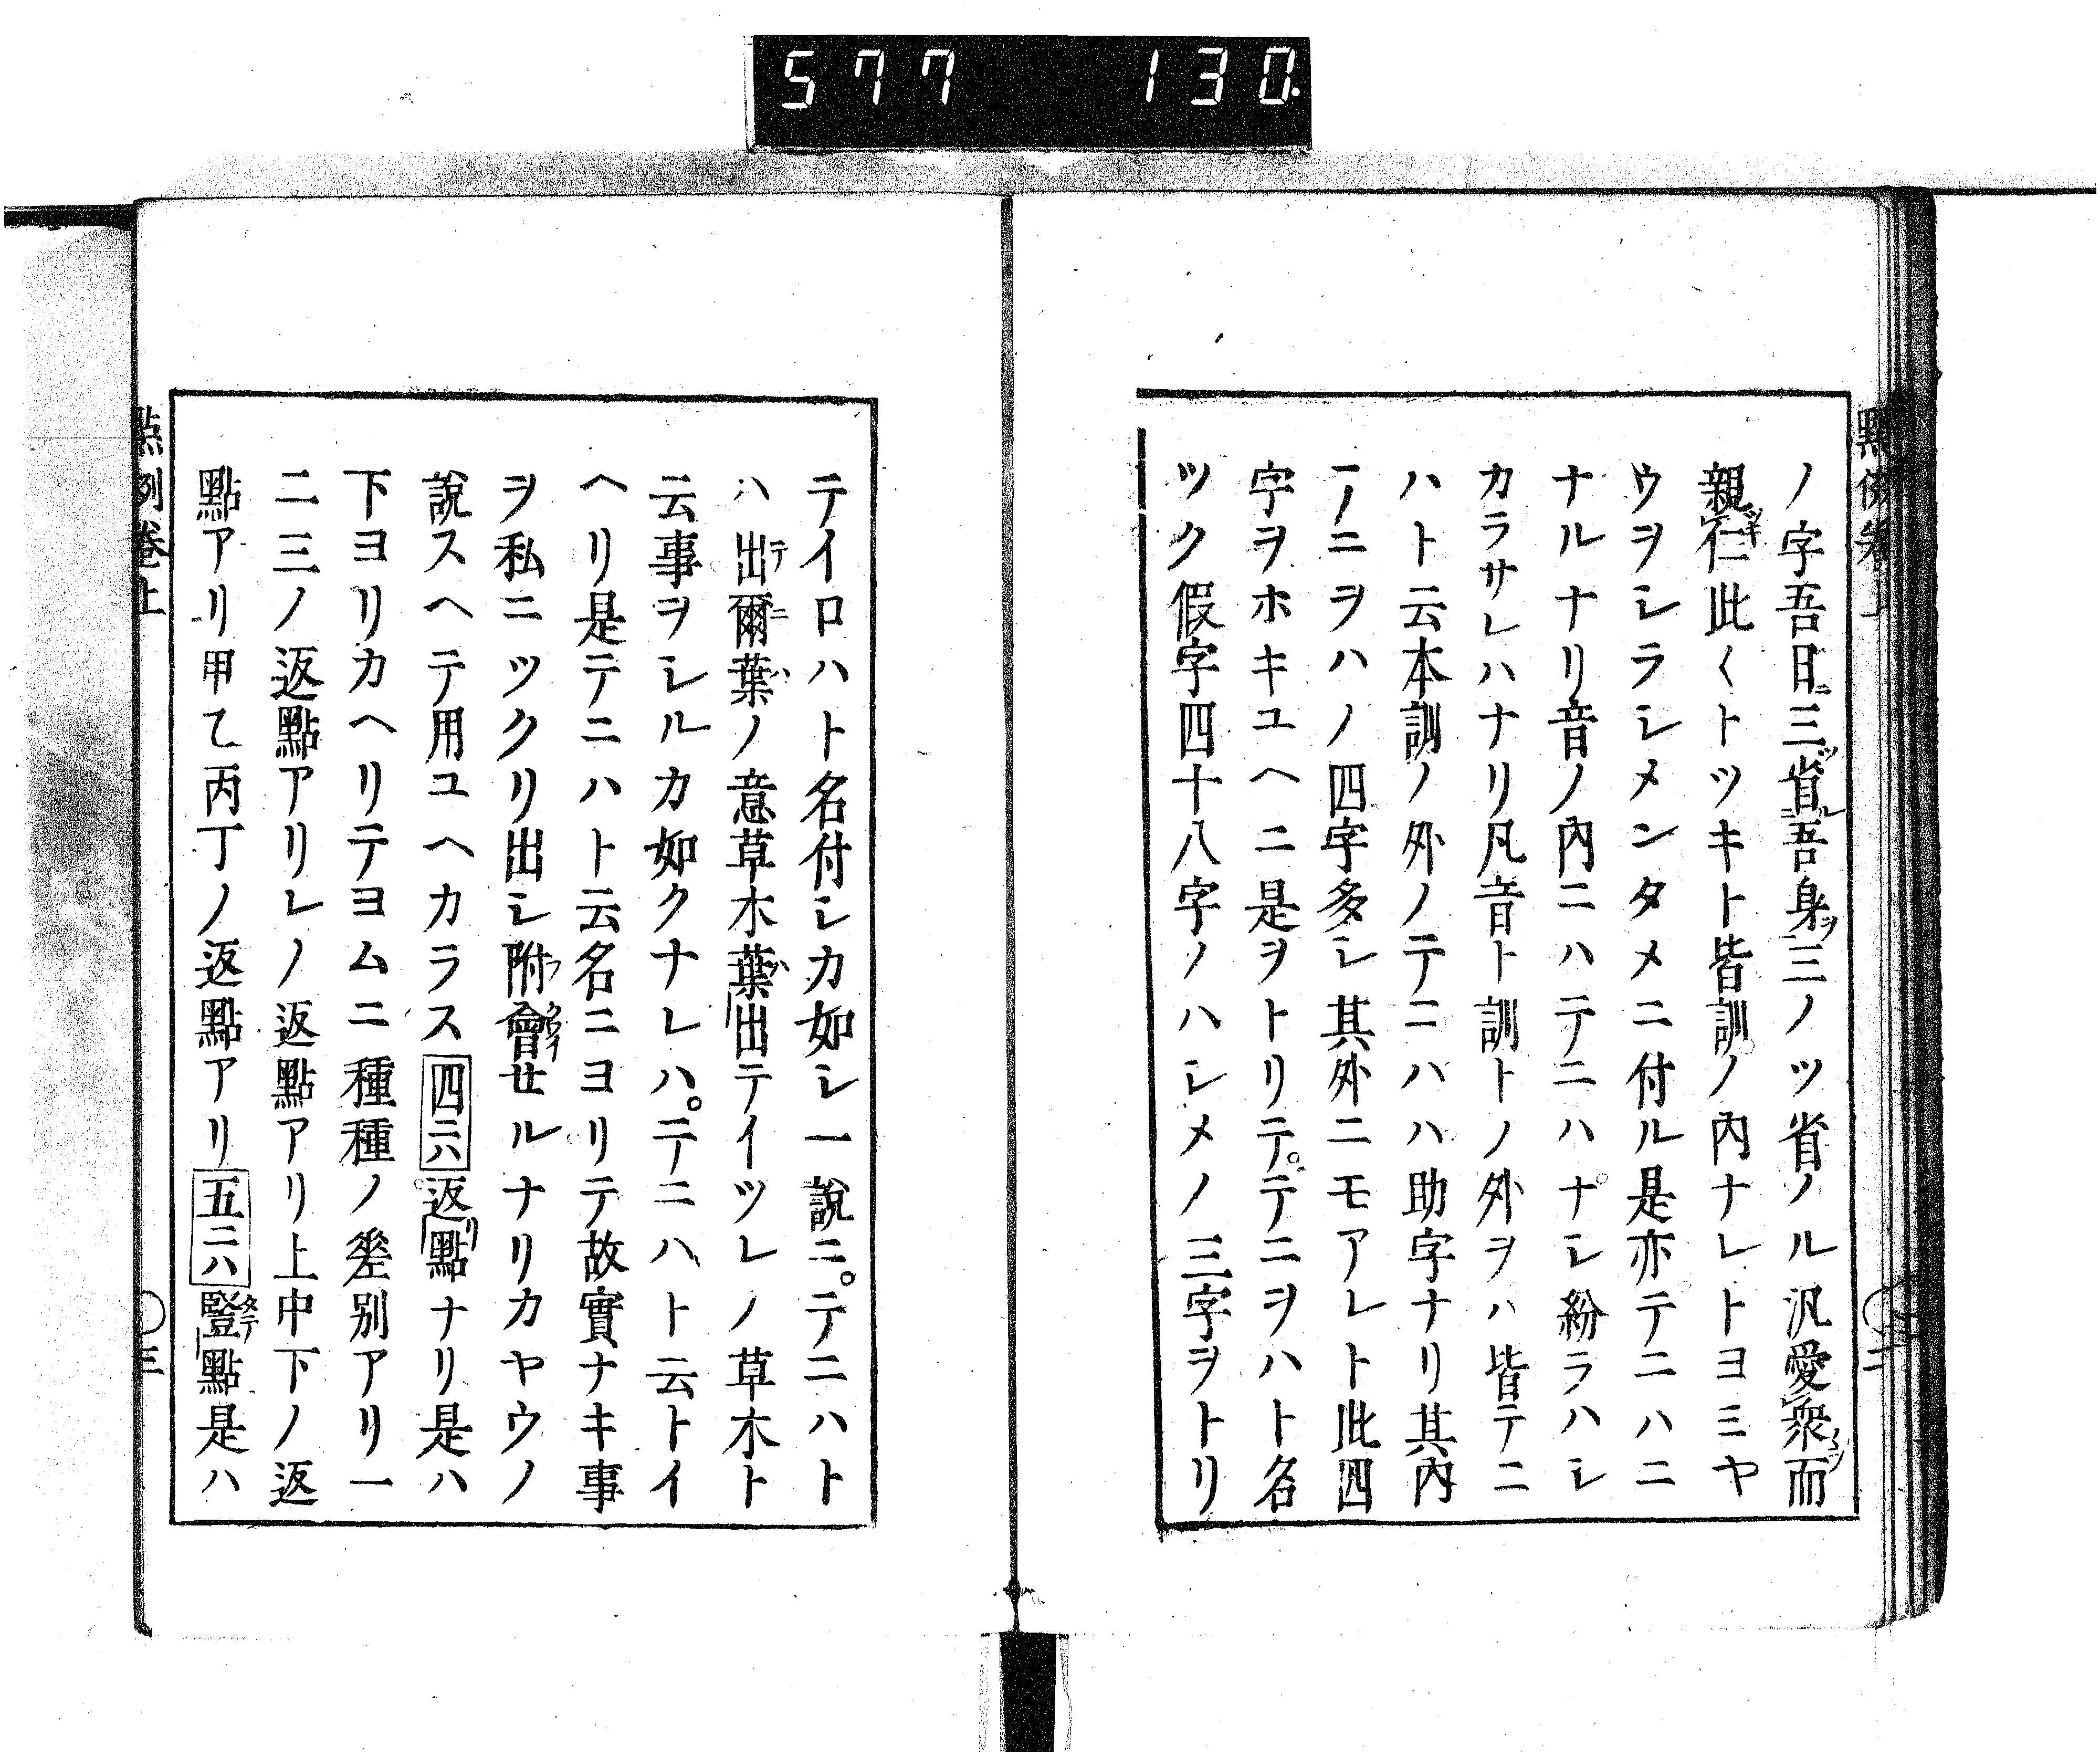 577 130.
ノ字吾日三省吾身三ノツ省ノル汎愛衆而
親仁此くトツキト皆訓ノ內ナレトヨミヤ
ウヲシラシメンタメニ付ル是亦テニハニ
ナルナリ音ノ內ニハテニハナシ紛ラハシ
カラサレハナリ凡音ト訓トノ外ヲハ皆テニ
ハト云本訓ノ外ノテニハハ助字ナリ其內
テニヲハノ四字多シ其外ニモアレト此四
字ヲホキユヘニ是ヲトリテ。テニヲハト名
ツク假字四十八字ノハシメノ三字ヲトリ
テイロハト名付シカ如シ一說ニ。テニハト
ハ出爾葉ノ意草木葉出テイツレノ草木ト
云事ヲシルカ如クナレハ。テニハト云トイ
ヘリ是テニハト云名ニヨリテ故實ナキ事
ヲ私ニツクリ出シ附會セルナリカヤウノ
說スヘテ用ユヘカラス四ニハ返點ナリ是ハ
下ヨリカヘリテヨムニ種種ノ差別アリ一
二三ノ返點アリレノ返點アリ上中下ノ返
點アリ甲乙丙丁ノ返點アリ五ニハ豎點是ハ
點例卷上
三